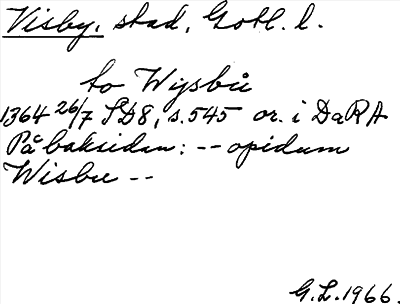 Visby, stad, Gotl. l.
to Wysbů
1364 26/7 SD8, s. 545 or. i DaRA
På baksidan: -- opidum
Wisbu --
G.L. 1966.